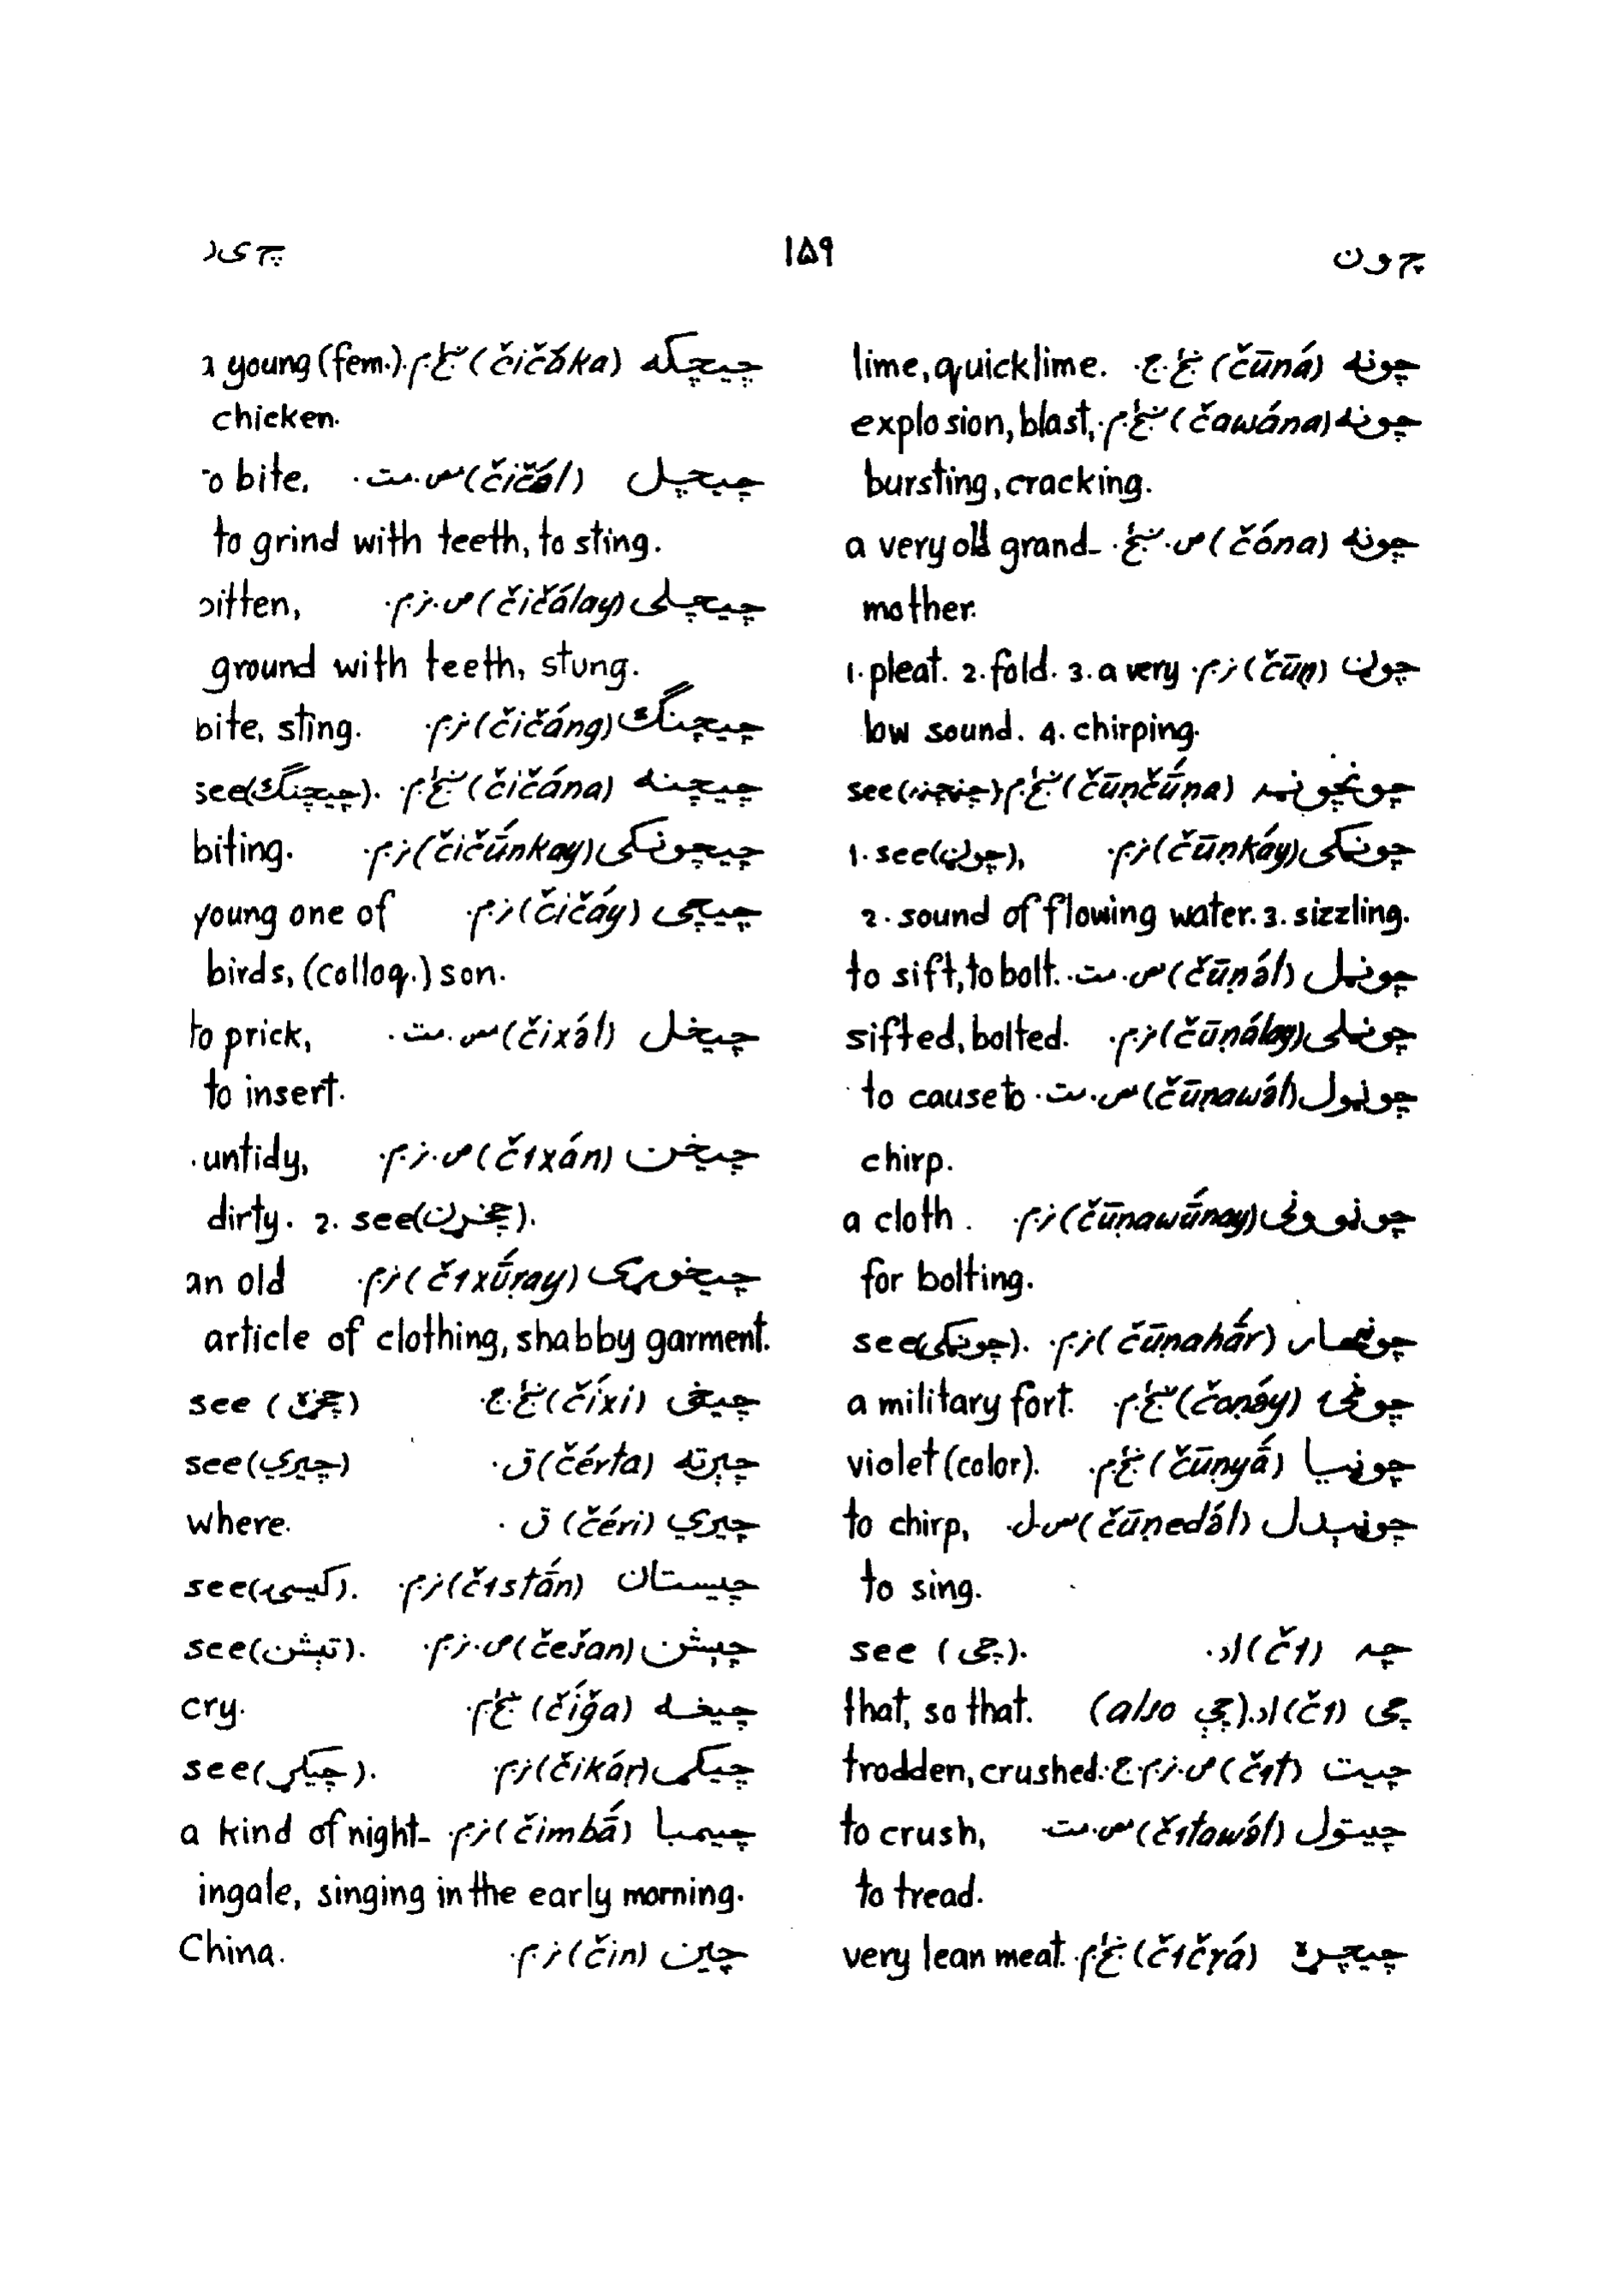 چ ون
۱۵۹
چ ی ر
چونه (čūná) ښځ. ج. lime, quicklime.
چونه (čawána) ښځ. م. explosion, blast,
bursting, cracking.
چونه (čóna) ص. ښځ. a very old grand-
mother.
(čūṇ) نر. م. 1. pleat. 2. fold. 3. a very
low sound. 4. chirping.
(čūṇčū́ṇa) ښځ. م. see
(čūṇkáy) نر. م. 1. see
2. sound of flowing water. 3. sizzling.
(čūṇə́l) مص. مت. to sift, to bolt.
(čūṇə́lay) نر. م. sifted, bolted.
(čūṇawə́l) مص. مت. to cause to
chirp.
(čūṇawū́nay) نر. م. a cloth
for bolting.
(čūṇahā́r) نر. م. see
(čoṇə́y) ښځ. م. a military fort.
چوڼیا (čūṇyā́) ښځ. م. violet (color).
(čūṇedə́l) مص. ل. to chirp,
to sing.
چه (čı) اد. see (چی).
چی (čı) اد. (also چې) that, so that.
چیت (čıt) ص. نر. م. ج. trodden, crushed.
چیتول (čıtawə́l) مص. مت. to crush,
to tread.
چیچړه (čıčṛá) ښځ. م. very lean meat.
چیچکه (čičə́ka) ښځ. م. a young (fem.)
chicken.
چیچل (čičə́l) مص. مت. to bite,
to grind with teeth, to sting.
چیچلی (čičə́lay) ص. نر. م. bitten,
ground with teeth, stung.
چیچنگ (čičáng) نر. م. bite, sting.
چیچنه (čičána) ښځ. م. see (چیچنگ).
چیچونکی (čičū́nkay) نر. م. biting.
چیچی (čičáy) نر. م. young one of
birds, (colloq.) son.
چیخل (čixə́l) مص. مت. to prick,
to insert.
چیخن (čıxán) ص. نر. م. untidy,
dirty. 2. see (چخرن).
چیخوړی (čıxū́ṛay) نر. م. an old
article of clothing, shabby garment.
چیخی (číxi) ښځ. ج. see
چېرته (čérta) ق. see (چیري)
چیري (čéri) ق. where.
چیستان (čıstā́n) نر. م. see (کیسۍ).
چېشن (češan) ص. نر. م. see (تېشن).
چیغه (číǧa) ښځ. م. cry.
(čikáṛ) نر. م. see
چیمبا (čimbā́) نر. م. a kind of night-
ingale, singing in the early morning.
چین (čin) نر. م. China.